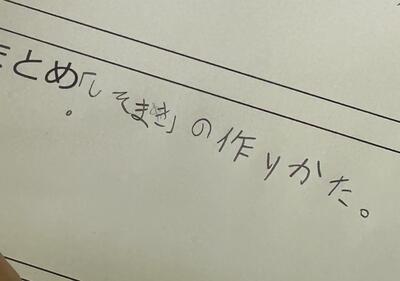 まとめ「しそまき」の作りかた。